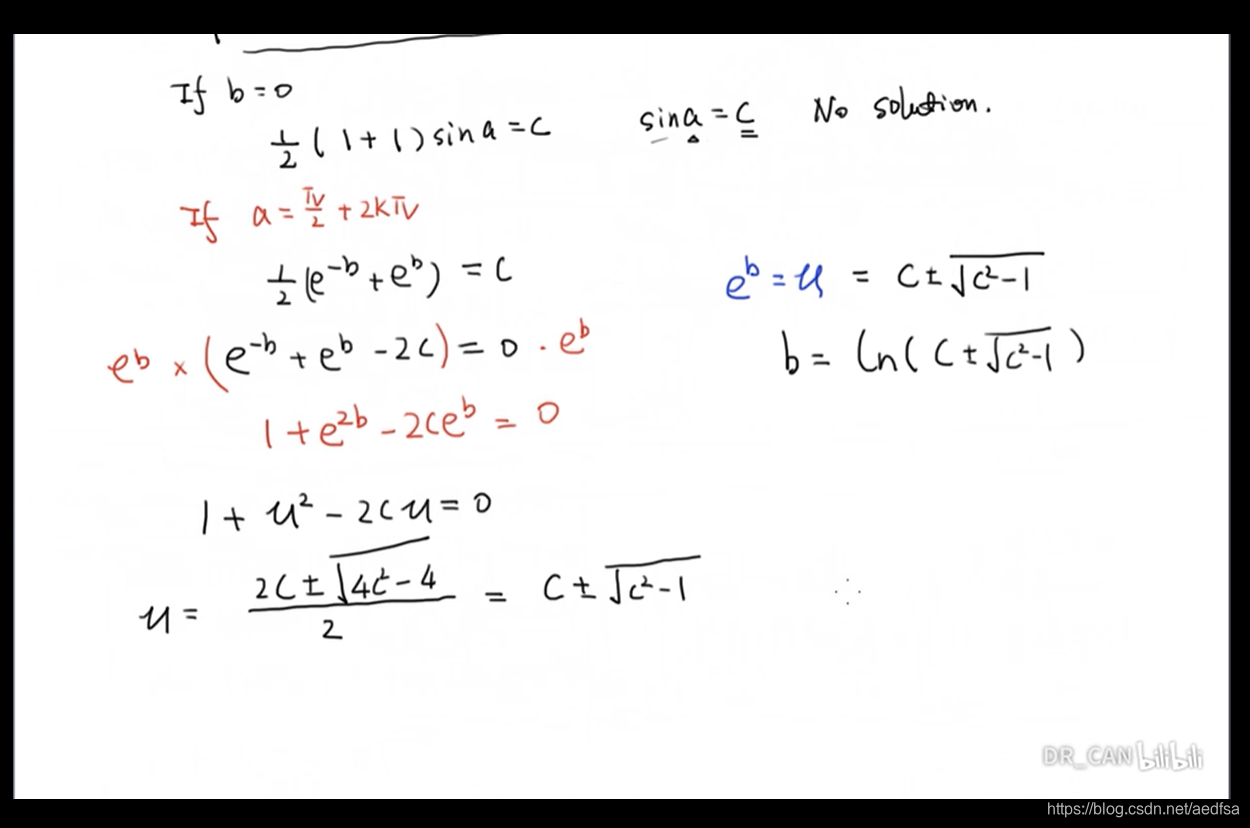 If b=0
½(1+1)sina=C    sina=C    No solution.
If a=π/2+2kπ
½(e^{-b}+e^{b})=C
e^{b}×(e^{-b}+e^{b}-2C)=0·e^{b}
1+e^{2b}-2Ce^{b}=0
1+u²-2Cu=0
u=(2C±√(4C²-4))/2=C±√(C²-1)
e^{b}=u=C±√(C²-1)
b=ln(C±√(C²-1))
DR_CAN bilibili
https://blog.csdn.net/aedfsa